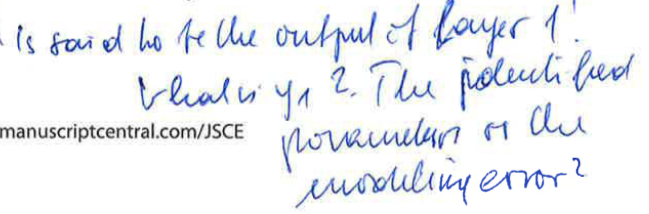 is said to be the output of layer 1!
What is y1?. The identified
manuscriptcentral.com/JSCE
parameters or the
modeling error?